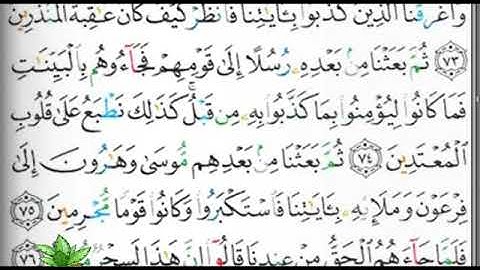 وَأَغْرَقْنَا الَّذِينَ كَذَّبُوا بِـَٔايَـٰتِنَا فَانظُرْ كَيْفَ كَانَ عَـٰقِبَةُ الْمُنذَرِينَ
﴿٧٣﴾ ثُمَّ بَعَثْنَا مِنۢ بَعْدِهِۦ رُسُلًا إِلَىٰ قَوْمِهِمْ فَجَآءُوهُم بِالْبَيِّنَـٰتِ
فَمَا كَانُوا لِيُؤْمِنُوا بِمَا كَذَّبُوا بِهِۦ مِن قَبْلُ ۚ كَذَٰلِكَ نَطْبَعُ عَلَىٰ قُلُوبِ
الْمُعْتَدِينَ ﴿٧٤﴾ ثُمَّ بَعَثْنَا مِنۢ بَعْدِهِم مُّوسَىٰ وَهَـٰرُونَ إِلَىٰ
فِرْعَوْنَ وَمَلَإِي۟هِۦ بِـَٔايَـٰتِنَا فَاسْتَكْبَرُوا وَكَانُوا قَوْمًا مُّجْرِمِينَ ﴿٧٥﴾
فَلَمَّا جَآءَهُمُ الْحَقُّ مِنْ عِندِنَا قَالُوٓا إِنَّ هَـٰذَا لَسِحْرٌ ﴿٧٦﴾